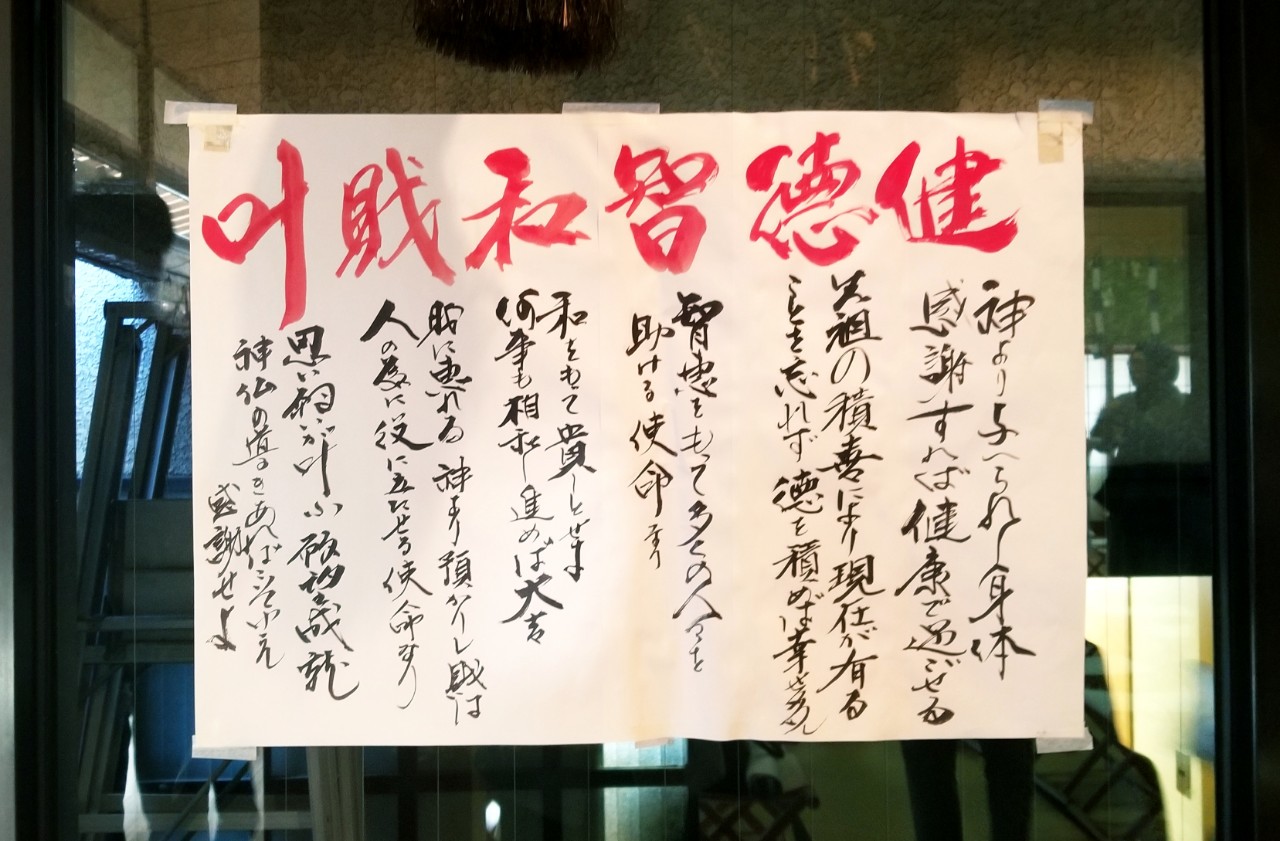 健徳智和財叶
神より与へられし身体
感謝すれば健康で過ごせる
先祖の積善により現在が有る
ことを忘れず徳を積めば幸せあらん
智恵をもって多くの人々を
助ける使命なり
和をもって貴しとせよ
何事も相和し進めば大吉
財に恵れる神より預かりし財は
人の為に役に立たせる使命なり
思い願いが叶ふ啓望成就
神仏の導きあればこそ
感謝せよ